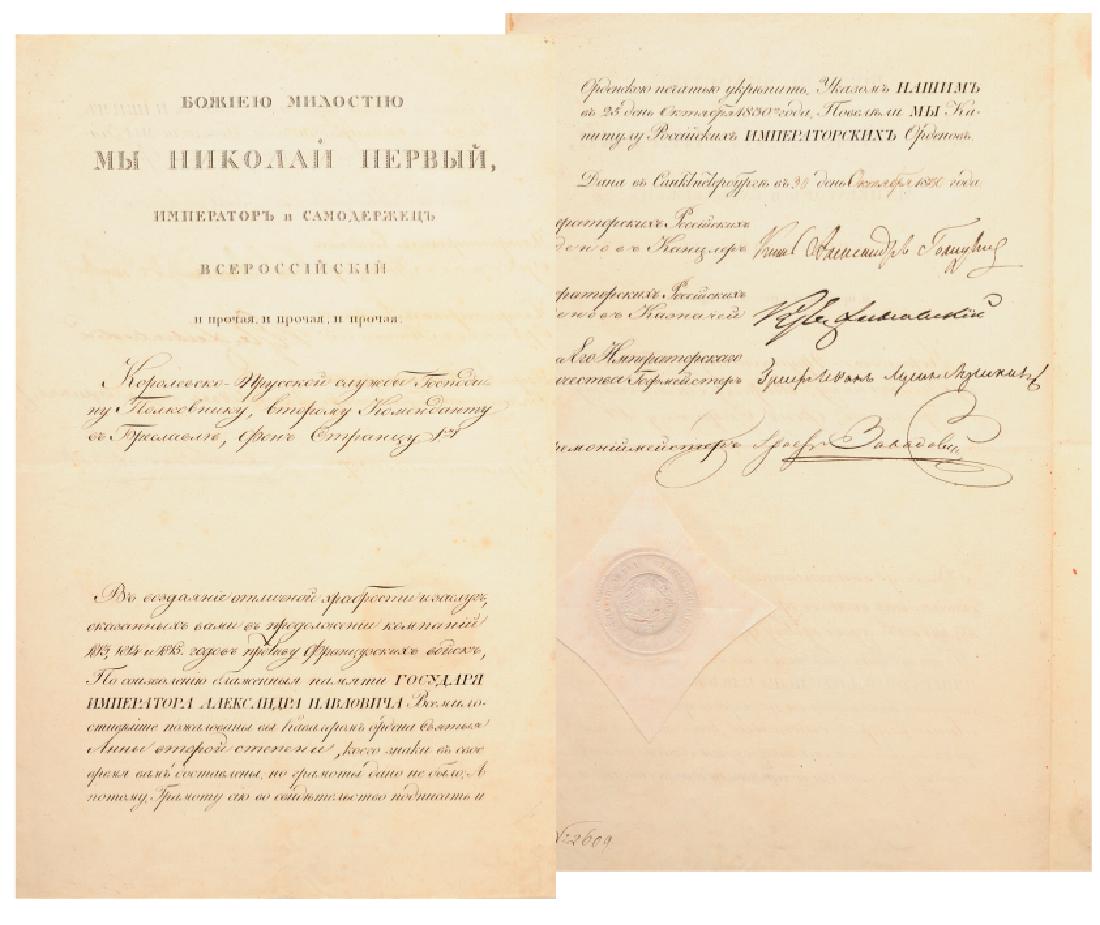 БОЖІЕЮ МИЛОСТІЮ
МЫ НИКОЛАЙ ПЕРВЫЙ,
ИМПЕРАТОРЪ и САМОДЕРЖЕЦЪ
ВСЕРОССІЙСКІЙ
и прочая, и прочая, и прочая.
Королевско-Прусской службы Господи-
ну Полковнику, второму Коменданту
въ Бреславлѣ, фонъ Странцу 1му
Въ воздаяніе отличной храбрости и заслугъ,
оказанныхъ вами въ продолженіи компаній
1813, 1814 и 1815. годовъ противу Французскихъ войскъ,
По соизволенію блаженныя памяти ГОСУДАРЯ
ИМПЕРАТОРА АЛЕКСАНДРА ПАВЛОВИЧА Всемило-
стивѣйше пожалованы вы Кавалеромъ ордена Святыя
Анны второй степени, коего знаки въ свое
время вамъ доставлены, но грамоты дано не было; А
потому, Грамоту сію во свидѣтельство подписать и
Орденскою печатью укрѣпить, Указомъ НАШИМЪ
въ 25 день Октября 1830го года, Повелѣли МЫ Ка-
питулу Россійскихъ ИМПЕРАТОРСКИХЪ Орденовъ.
Дана въ Санктпетербургѣ въ день Октября года
ераторскихъ Россійскихъ
деновъ Канцлеръ Князь Александръ Голицынъ
ераторскихъ Россійскихъ
деновъ Казначей
Его Императорскаго
чества Гофмейстеръ
ремоніймейстеръ Графъ Завадовскій
№ 2609